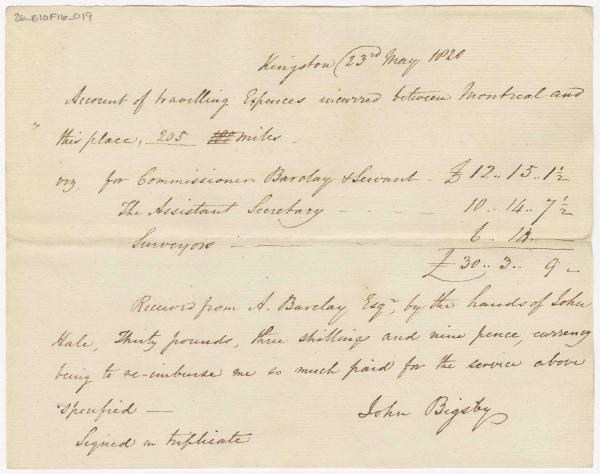 26-B10F16-019
Kingston 23rd May 1820
Account of travelling Expences incurred between Montreal and
this place, 205 miles.
viz. for Commissioner Barclay & Servant - £ 12.. 15.. 1½
The Assistant Secretary - - - 10.. 14.. 7½
Surveyors - - 6..
£ 30.. 3.. 9..
Received from A. Barclay Esqr, by the hands of John
Hale, Thirty pounds, three shillings and nine pence, currency
being to re-imburse me so much paid for the service above
specified —
John Bigsby
Signed in triplicate